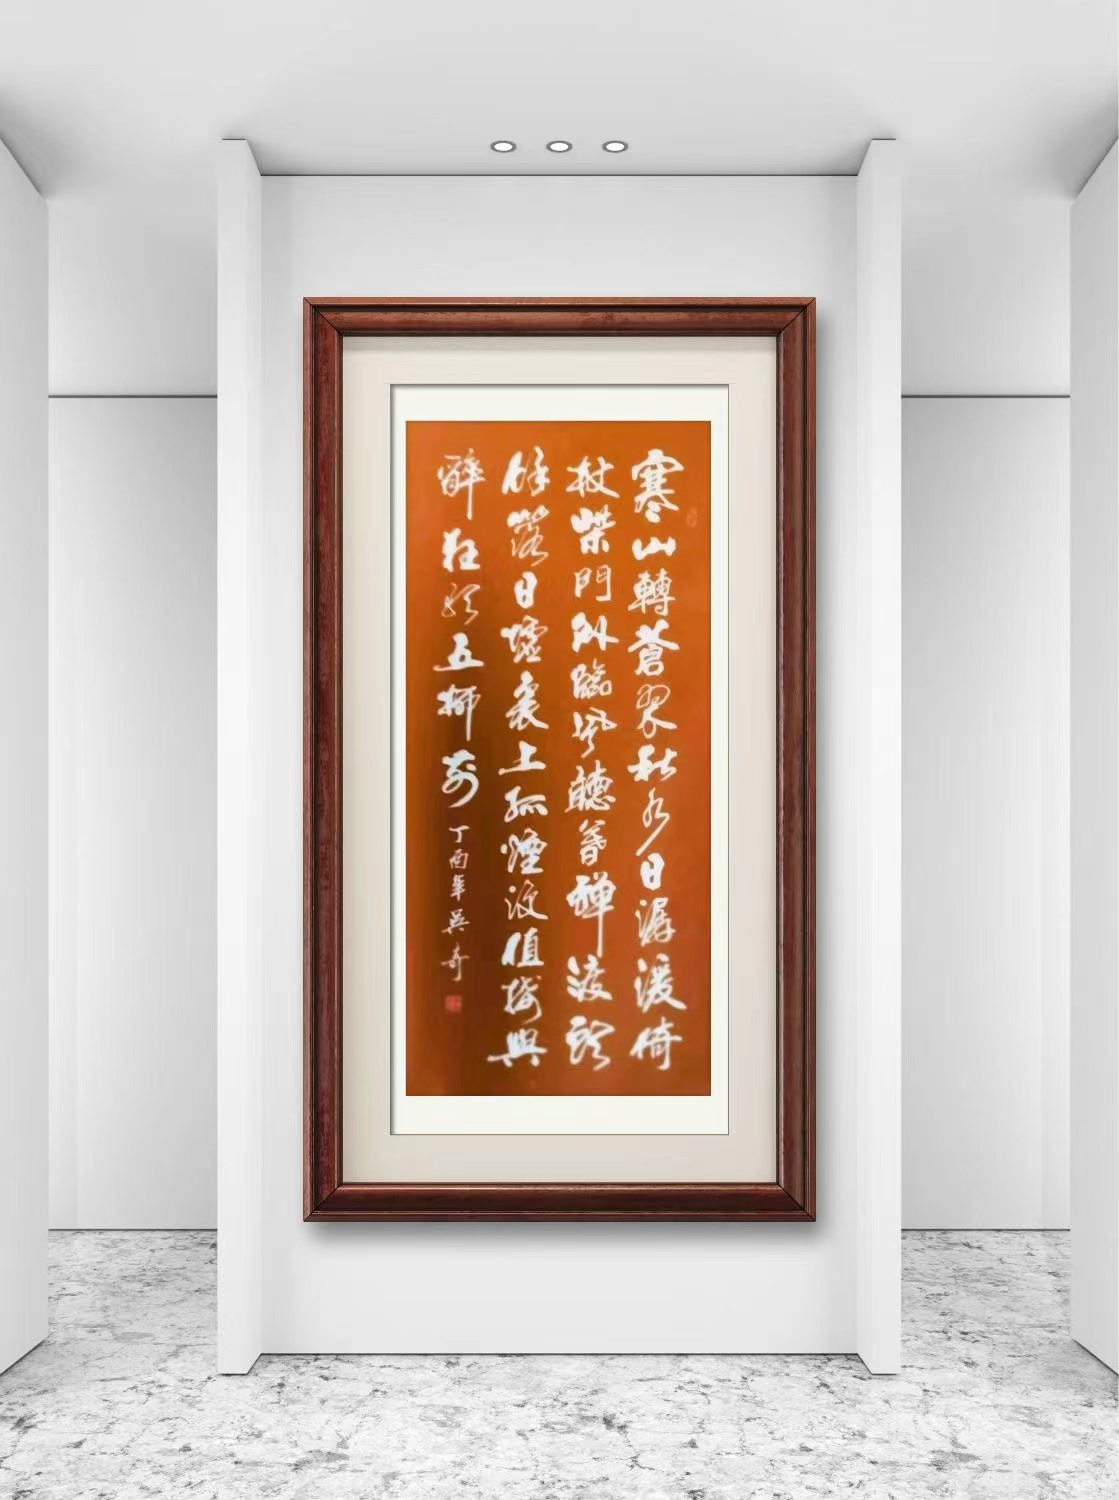 寒山轉蒼翠秋水日潺湲倚
杖柴門外臨風聽暮禪渡頭
餘落日墟裏上孤煙復值接輿
醉狂歌五柳前
丁酉年吳奇